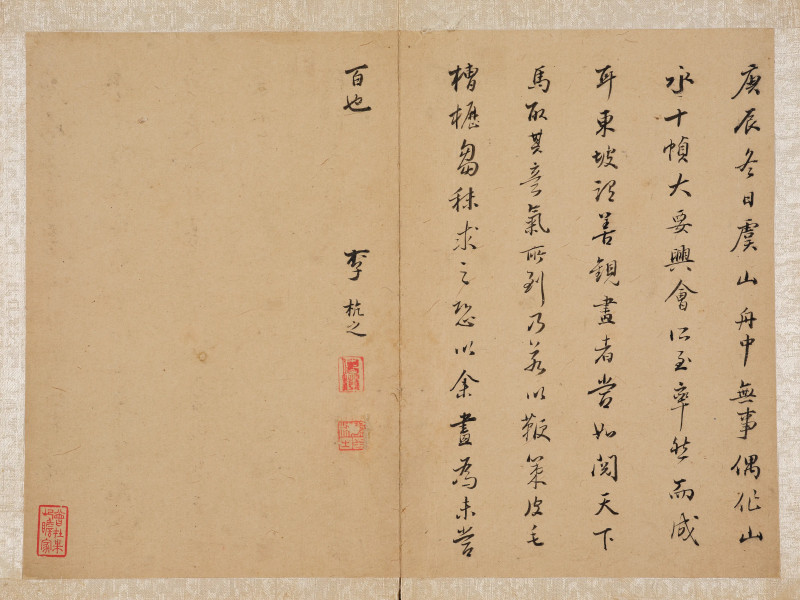 庚辰冬日虞山舟中無事偶作山
水十幀大要興會所至率然而成
耳東坡謂善觀畫者當如閱天下
馬取其意氣所到乃若以鞭策皮毛
槽櫪芻秣求之恐以余畫為未嘗
百也
李杭之